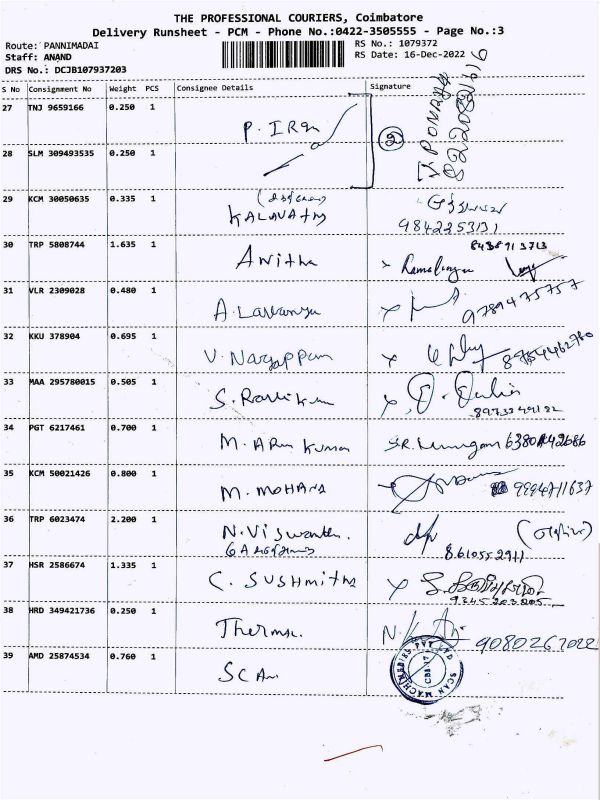 THE PROFESSIONAL COURIERS, Coimbatore
Delivery Runsheet - PCM - Phone No.:0422-3505555 - Page No.:3
Route: PANNIMADAI
RS No.: 1079372
Staff: ANAND
RS Date: 16-Dec-2022
DRS No.: DCJB107937203
S No Consignment No Weight PCS Consignee Details Signature
27 TNJ 9659166 0.250 1
P. IRan
28 SLM 309493535 0.250 1
2
29 KCM 30050635 0.335 1
KALAVATHY
9842253131
30 TRP 5808744 1.635 1 Anitha
31 VLR 2309028 0.480 1 A. Lavanya 9789475757
32 KKU 378904 0.695 1 V. Nagappan 8754462780
33 MAA 295780015 0.505 1 S. Ravikum
34 PGT 6217461 0.700 1 M. Arun Kumar
35 KCM 50021426 0.800 1 M. MOHANA 9994711637
36 TRP 6023474 2.200 1 N. Viswanth.
8610552911
37 HSR 2586674 1.335 1 C. SUSHmitha
9345203805
38 HRD 349421736 0.250 1 Therma. 9080267022
39 AMD 25874534 0.760 1 SCAn
SCAN MACHINERIES PVT LTD
CBE-17